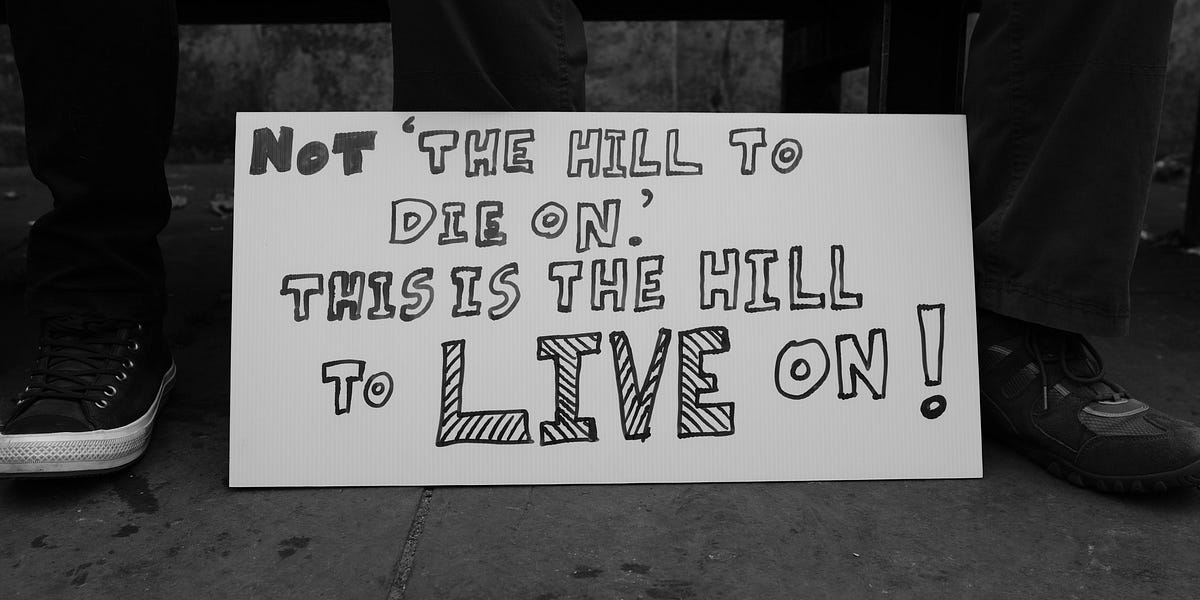 NOT ‘THE HILL TO
DIE ON.’
THIS IS THE HILL
TO LIVE ON!